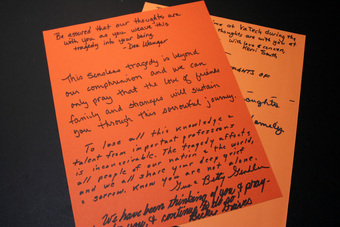 Be assured that our thoughts are
with you as you weave this
tragedy into your being
- Dee Wanger
This senseless tragedy is beyond
our comprehension and we can
only pray that the love of friends
family and strangers will sustain
you through this sorrowful journey.
To lose all this knowledge &
talent from important professors
is inconceivable. The tragedy affects
all people of our nation & the world,
and we all share your deep grief
& sorrow. Know you are not alone.
Gus & Betty
We have been thinking of you & pray-
you, & continue to do so.
at Va Tech during the
thoughts are with you at
With love & concern,
Kerri
MENTS OF
oughts
amily